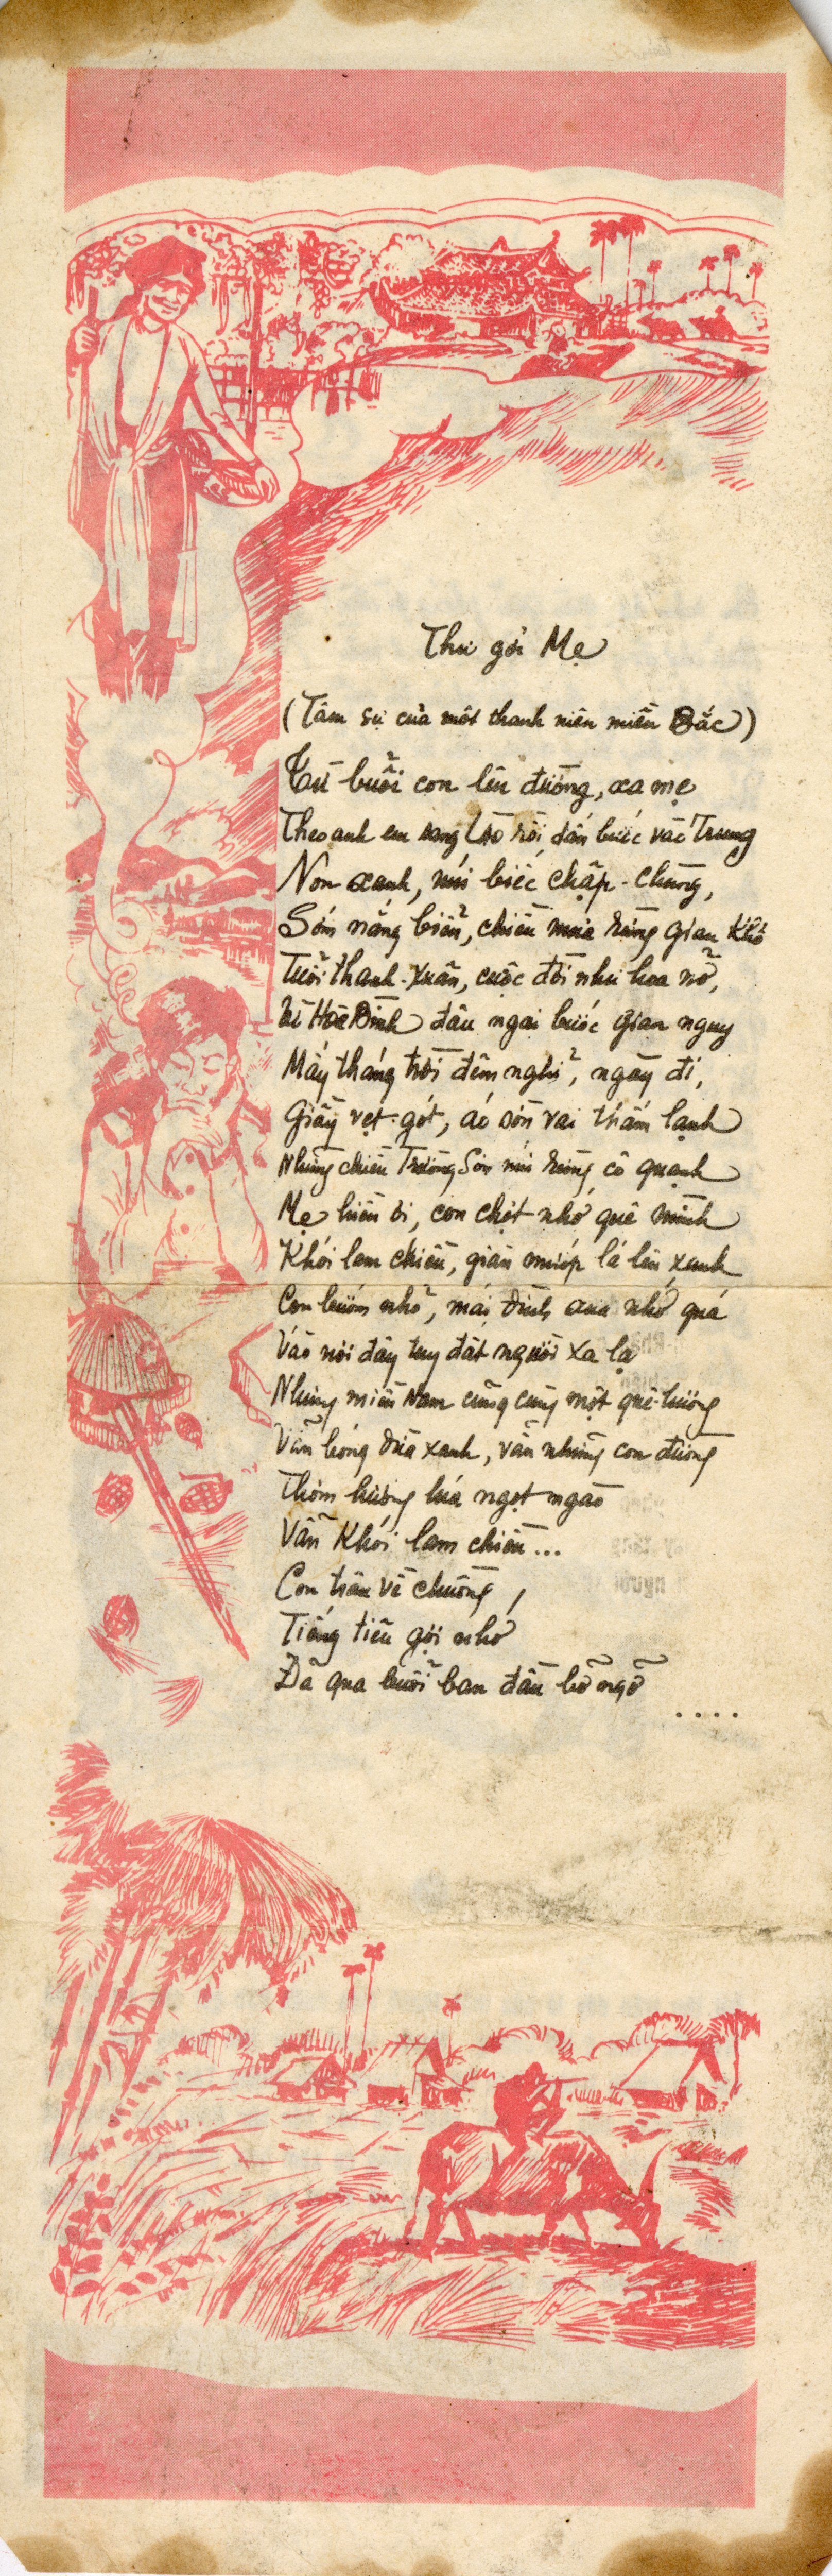 Thư gởi Mẹ
(Tâm sự của một thanh niên miền Bắc)
Từ buổi con lên đường, xa mẹ
Theo anh em sang Lào rồi dấn bước vào Trung
Non xanh, núi biếc chập-chùng,
Sớm nắng biển, chiều mưa rừng gian khổ
Tuổi thanh-xuân, cuộc đời như hoa nở,
Vì Hòa Bình đâu ngại bước gian nguy
Mấy tháng trời đêm nghỉ, ngày đi,
Giầy vẹt-gót, áo sờn vai thấm lạnh
Những chiều Trường Sơn núi rừng cô quạnh
Mẹ hiền ơi, con chợt nhớ quê mình
Khói lam chiều, giàn mướp lá lên xanh
Con bướm nhỏ, mái đình xưa nhớ quá
Vào nơi đây tuy đất người xa lạ
Nhưng miền Nam cũng cùng một quê-hương
Vẫn bóng dừa xanh, vẫn những con đường
Thơm hương lúa ngọt ngào
Vẫn khói lam chiều...
Con trâu về chuồng,
Tiếng tiêu gợi nhớ
Đã qua buổi ban đầu bỡ ngỡ
....